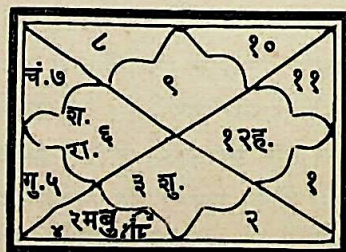 ८ १०
चं.७ ९ ११
श.
रा. ६ १२ह.
गु.५ ३ शु. १
४ २